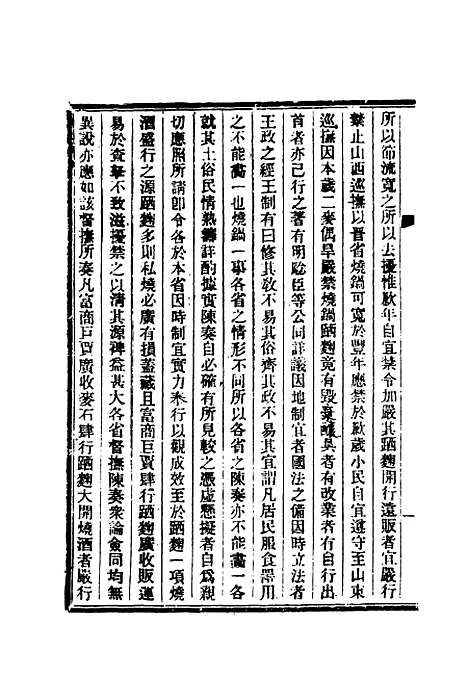 所以節流寬之所以去擾惟歉年自宜禁令加嚴其踩麴開行遠販者宜嚴行
禁止山西巡撫以晉省燒鍋可寬於豐年應禁於歉歲小民自宜遵守至山東
巡撫因本歲二麥偶旱嚴禁燒鍋踩麴竟有毀棄釀具者有改業者有自行出
首者亦已行之著有明驗臣等公同詳議因地制宜者國法之備因時立法者
王政之經王制有曰修其敎不易其俗齊其政不易其宜謂凡居民服食器用
之不能齊一也燒鍋一事各省之情形不同所以各省之陳奏亦不能齊一各
就其土俗民情熟籌詳酌據實陳奏自必確有所見較之憑虛懸擬者自爲親
切應照所請卽令各於本省因時制宜實力奉行以觀成效至於踩麴一項燒
酒盛行之源踩麴多則私燒必廣有損蓋藏且富商巨賈肆行踩麴廣收販運
易於查拏不致滋擾禁之以淸其源裨益甚大各省督撫陳奏衆論僉同均無
異說亦應如該督撫所奏凡富商巨賈廣收麥石肆行踩麴大開燒酒者嚴行